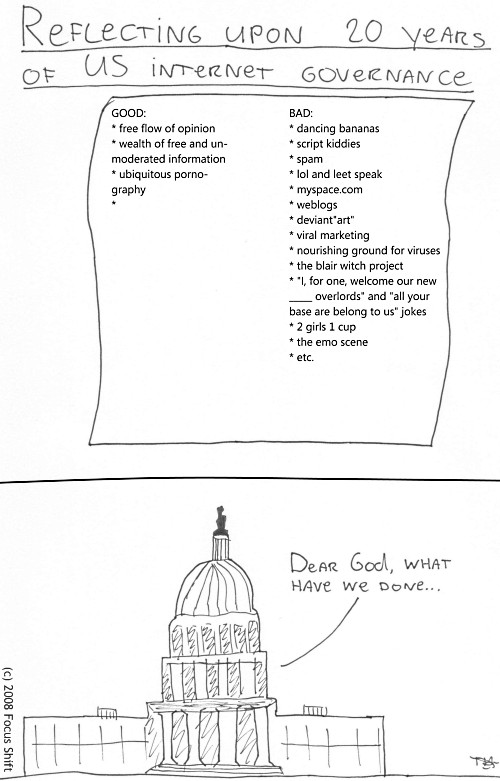 REFLECTING UPON 20 YEARS
OF US INTERNET GOVERNANCE
GOOD:
* free flow of opinion
* wealth of free and un-
moderated information
* ubiquitous porno-
graphy
*
BAD:
* dancing bananas
* script kiddies
* spam
* lol and leet speak
* myspace.com
* weblogs
* deviant"art"
* viral marketing
* nourishing ground for viruses
* the blair witch project
* "I, for one, welcome our new
____ overlords" and "all your
base are belong to us" jokes
* 2 girls 1 cup
* the emo scene
* etc.
DEAR GOD, WHAT
HAVE WE DONE...
(c) 2008 Focus Shift